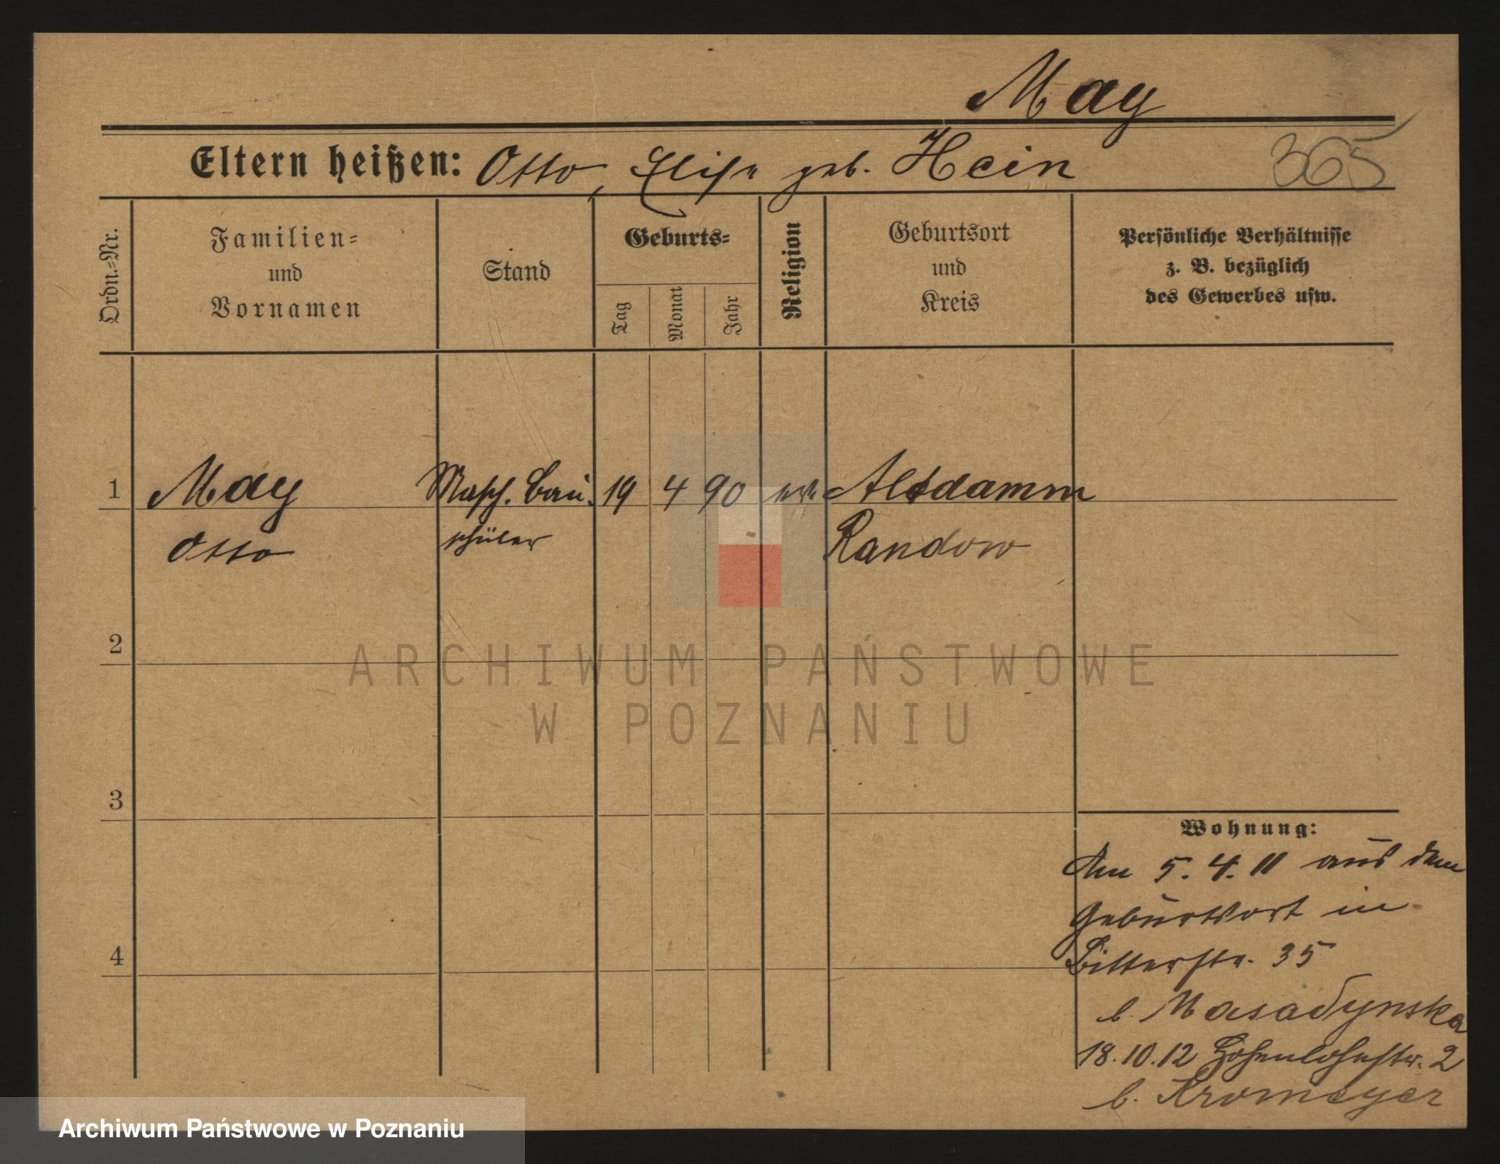 May
Eltern heißen: Otto, Elise geb. Hein
365
Ordn.=Nr.
Familien=
und
Vornamen
Stand
Geburts=
Tag
Monat
Jahr
Religion
Geburtsort
und
Kreis
Persönliche Verhältnisse
z. B. bezüglich
des Gewerbes usw.
1 May Masch. bau. 19 4 90 Altdamm
Otto schüler Randow
2
3
4
Wohnung:
Am 5. 4. 11 aus dem
Geburtsort in
Ritterstr. 35
b.
18.10.12 Hohenlohestr. 2
b. Kromeyer
ARCHIWUM PAŃSTWOWE
W POZNANIU
Archiwum Państwowe w Poznaniu